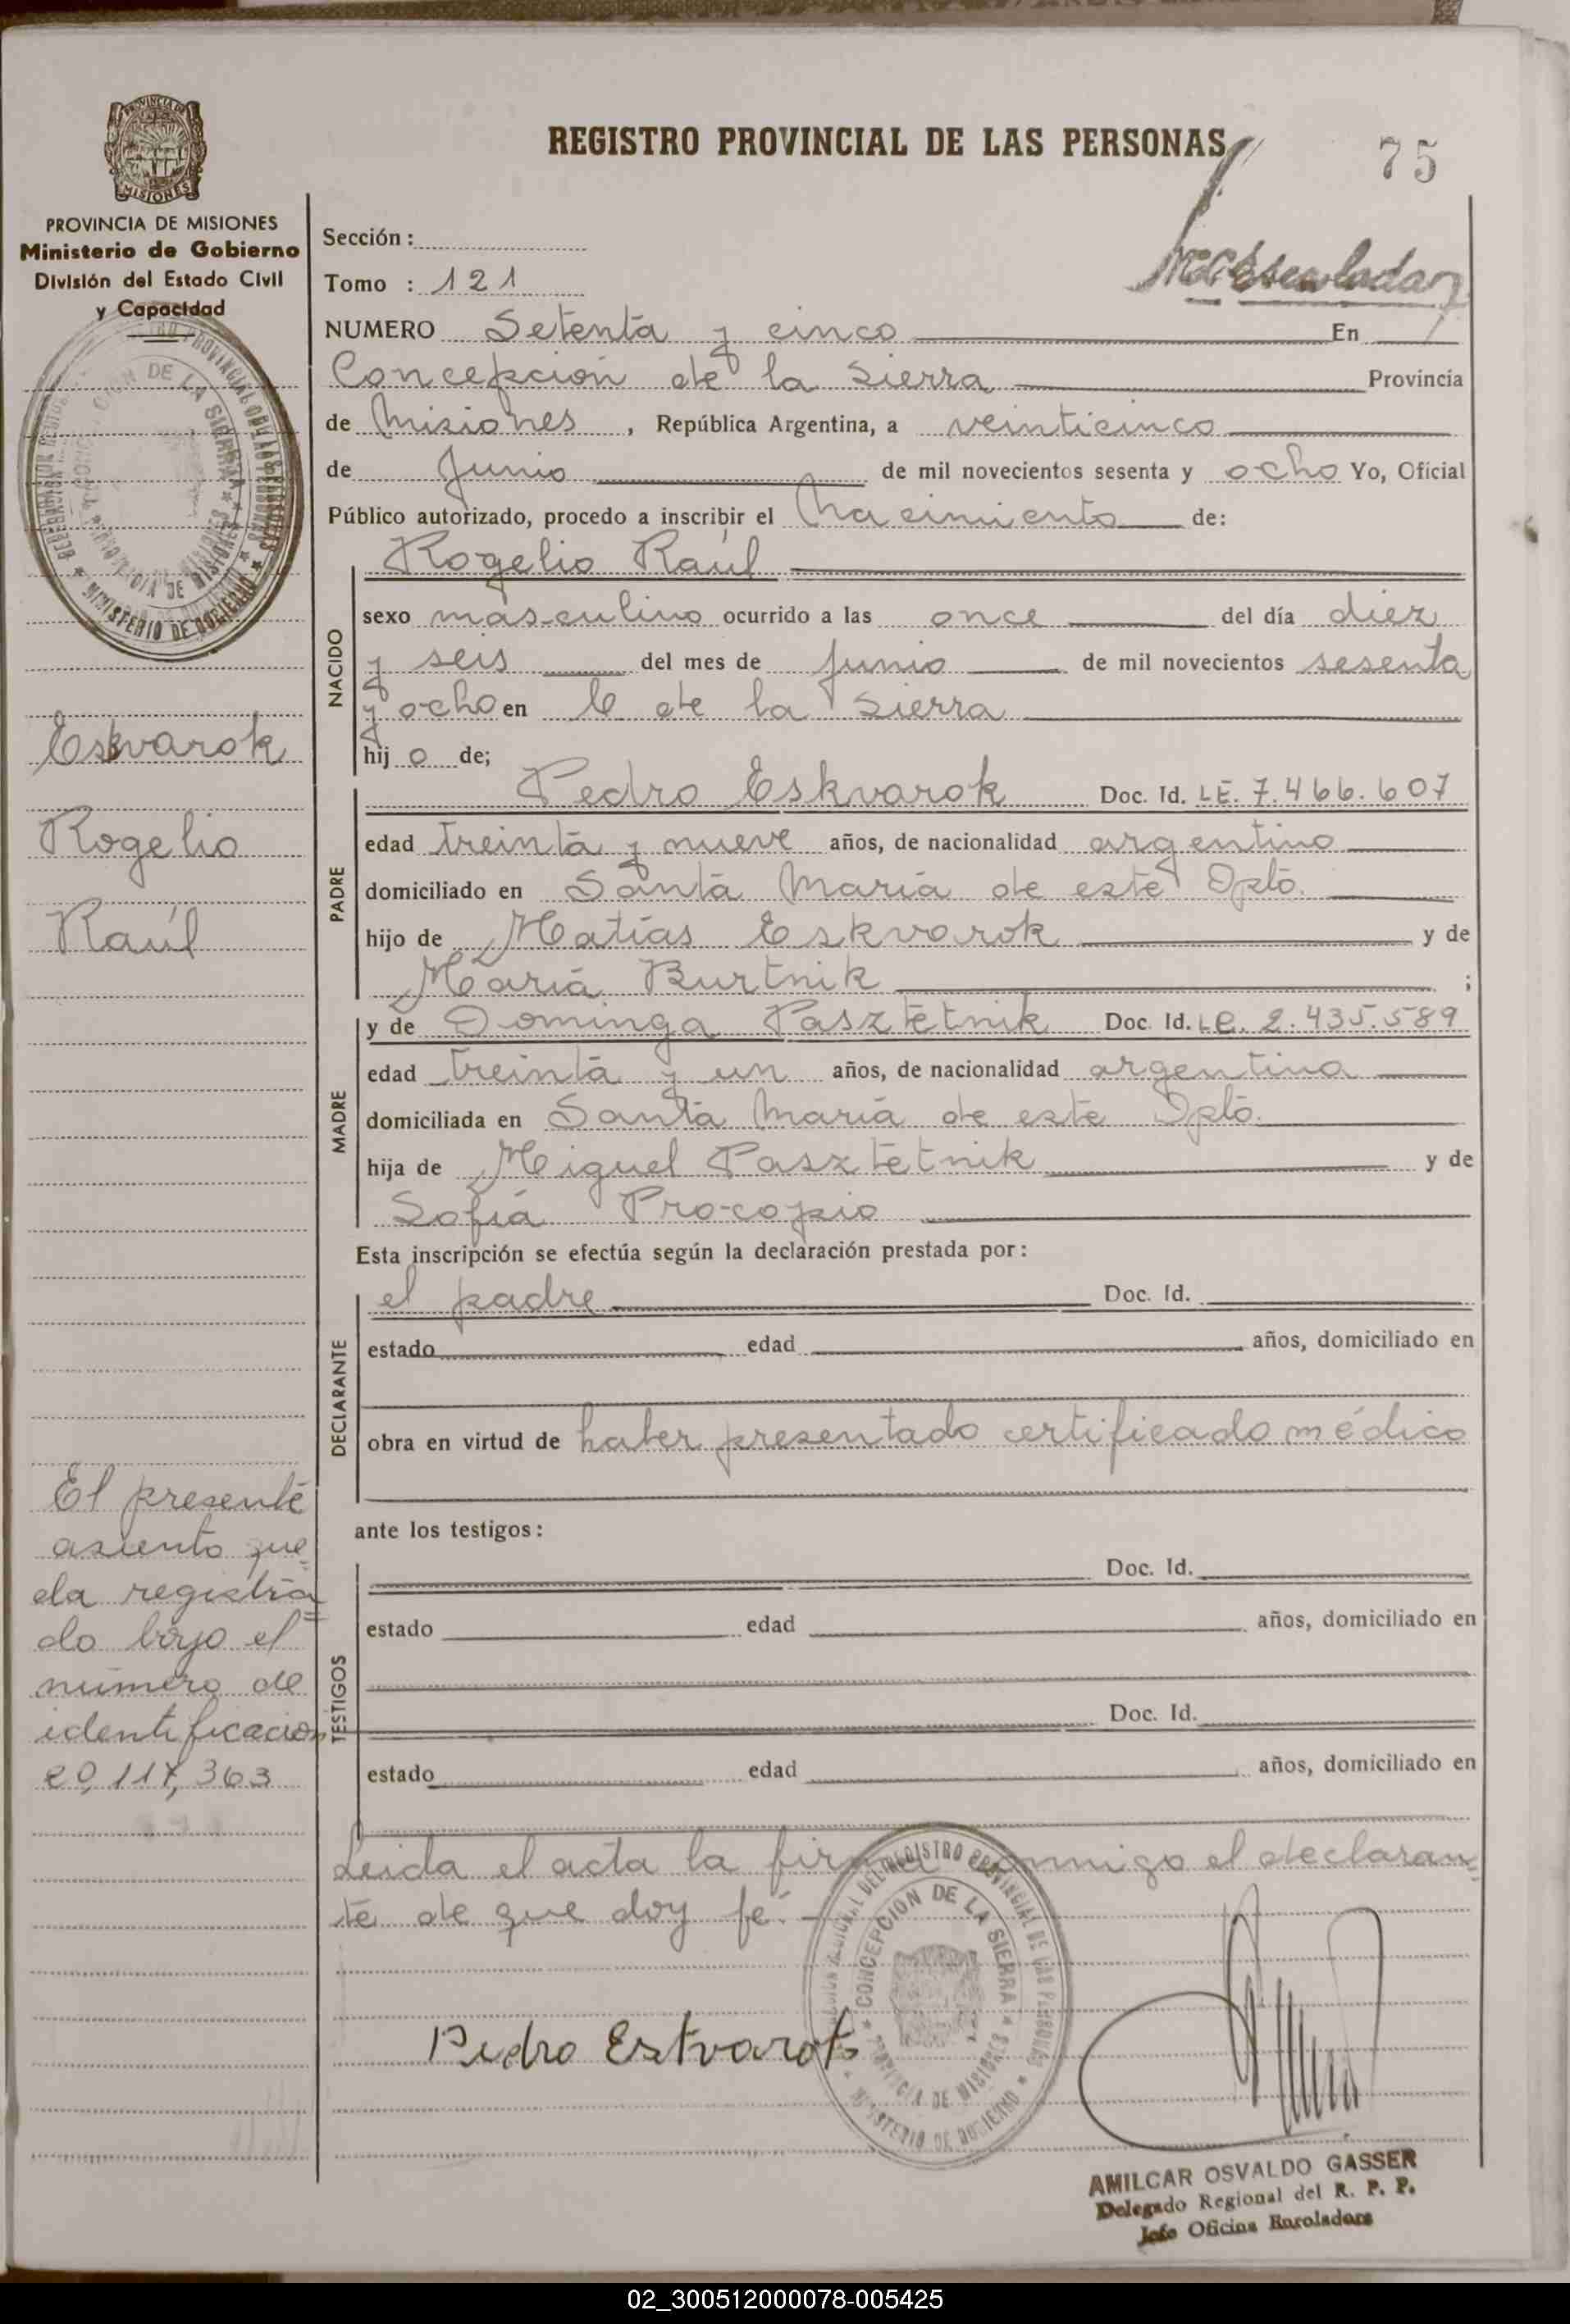 REGISTRO PROVINCIAL DE LAS PERSONAS
75
PROVINCIA DE MISIONES
Ministerio de Gobierno
División del Estado Civil
y Capacidad
Sección :
Tomo : 121
NUMERO Setenta y cinco En
Concepción de la Sierra Provincia
de Misiones , República Argentina, a veinticinco
de Junio de mil novecientos sesenta y ocho Yo, Oficial
Público autorizado, procedo a inscribir el nacimiento de:
Rogelio Raúl
NACIDO
sexo masculino ocurrido a las once del día diez
y seis del mes de junio de mil novecientos sesenta
y ocho en C de la Sierra
hij o de;
PADRE
Pedro Eskvarok Doc. Id. LE. 7.466.607
edad treinta y nueve años, de nacionalidad argentino
domiciliado en Santa María de este Dpto.
hijo de Matías Eskvarok y de
María Burtnik ;
MADRE
y de Dominga Pasztetnik Doc. Id. LC. 2.435.589
edad treinta y un años, de nacionalidad argentina
domiciliada en Santa María de este Dpto.
hija de Miguel Pasztetnik y de
Sofía Procopio
Esta inscripción se efectúa según la declaración prestada por:
DECLARANTE
el padre Doc. Id.
estado edad años, domiciliado en
obra en virtud de haber presentado certificado médico
ante los testigos:
TESTIGOS
Doc. Id.
estado edad años, domiciliado en
Doc. Id.
estado edad años, domiciliado en
Leida el acta la firma conmigo el declaran
te de que doy fé.-
Pedro Eskvarok
CONCEPCION DE LA SIERRA
PROVINCIA DE MISIONES
MINISTERIO DE GOBIERNO
AMILCAR OSVALDO GASSER
Delegado Regional del R. P. P.
Jefe Oficina Enroladora
Eskvarok
Rogelio
Raúl
El presente
asiento que
da registra
do bajo el
número de
identificación
20,117,363
02_300512000078-005425